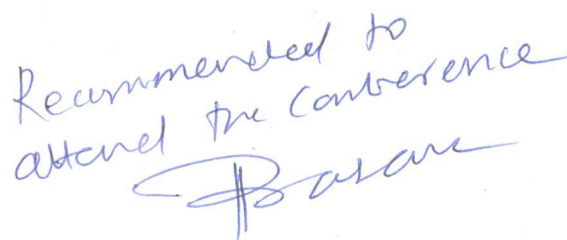 Recommended to
attend the Conference